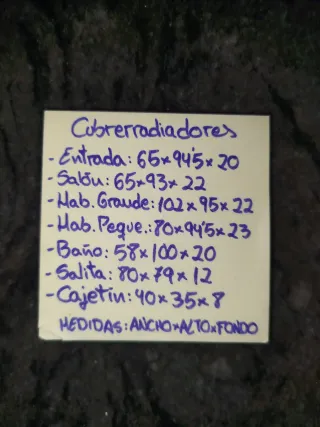 Cubrerradiadores
- Entrada: 65x94'5x20
- Salón: 65x93x22
- Hab. Grande: 102x95x22
- Hab. Peque.: 70x94'5x23
- Baño: 58x100x20
- Salita: 80x79x12
- Cajetín: 40x35x8
MEDIDAS: ANCHOxALTOxFONDO